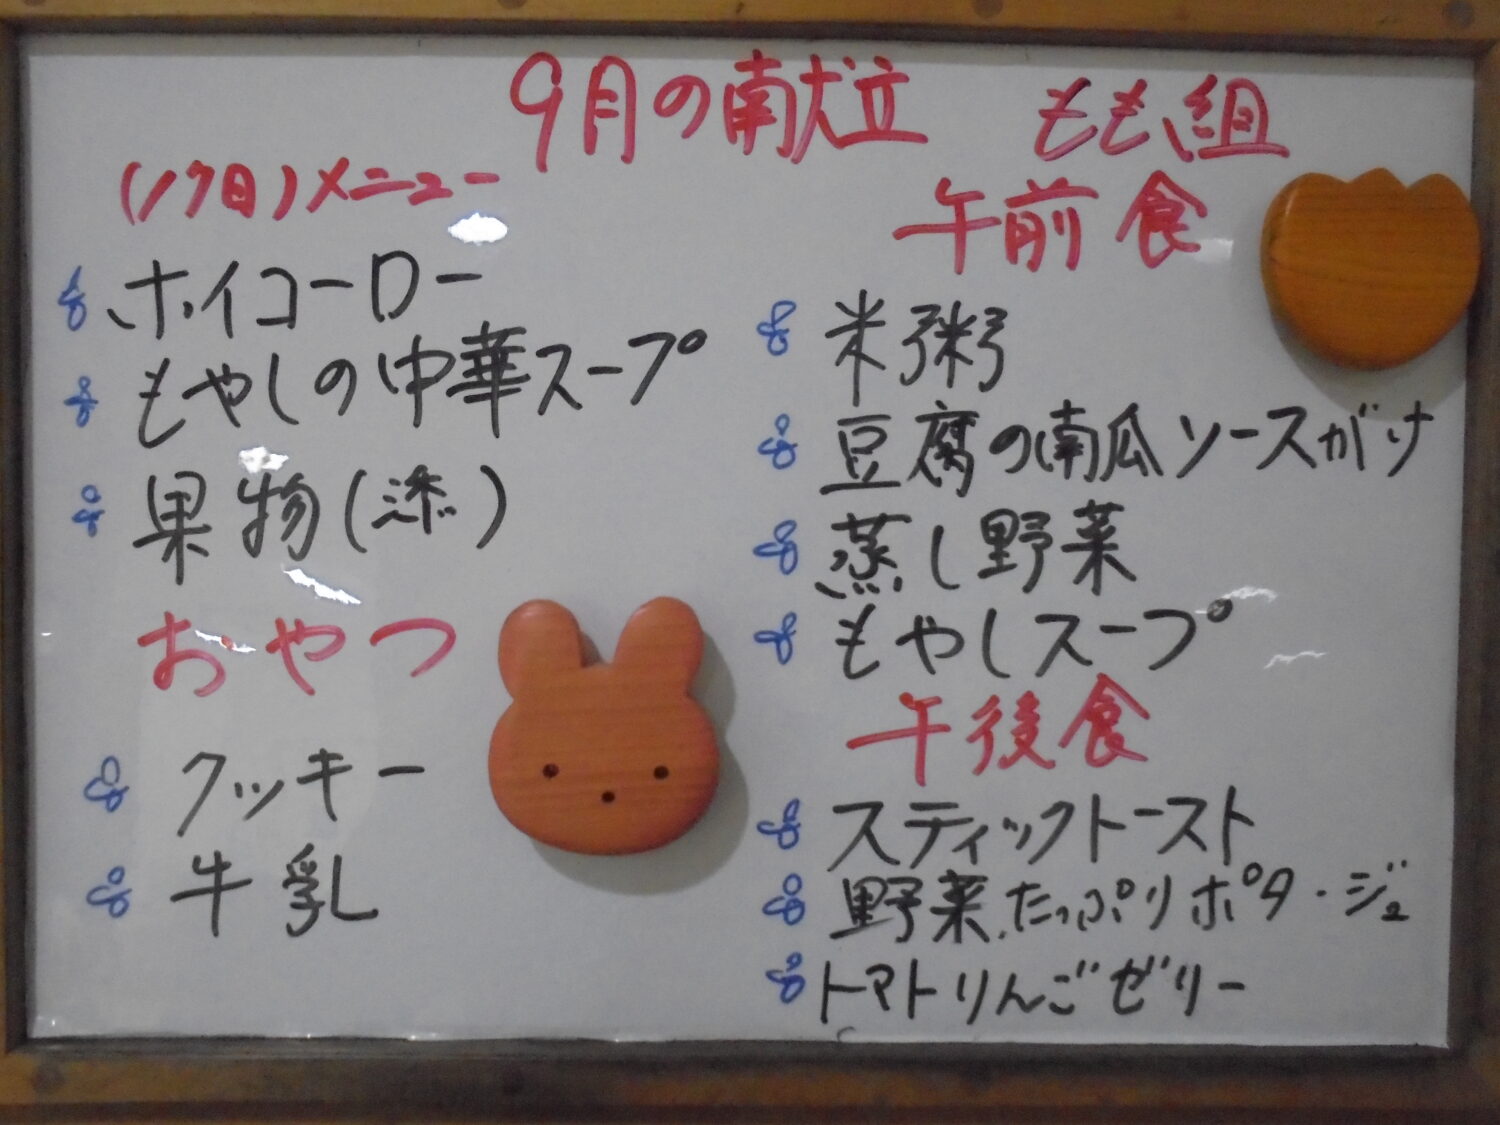 9月の献立
(17日)メニュー
ホイコーロー
もやしの中華スープ
果物(添)
おやつ
クッキー
牛乳
もも組
午前食
米粥
豆腐の南瓜ソースがけ
蒸し野菜
もやしスープ
午後食
スティックトースト
野菜たっぷりポタージュ
トマトりんごゼリー